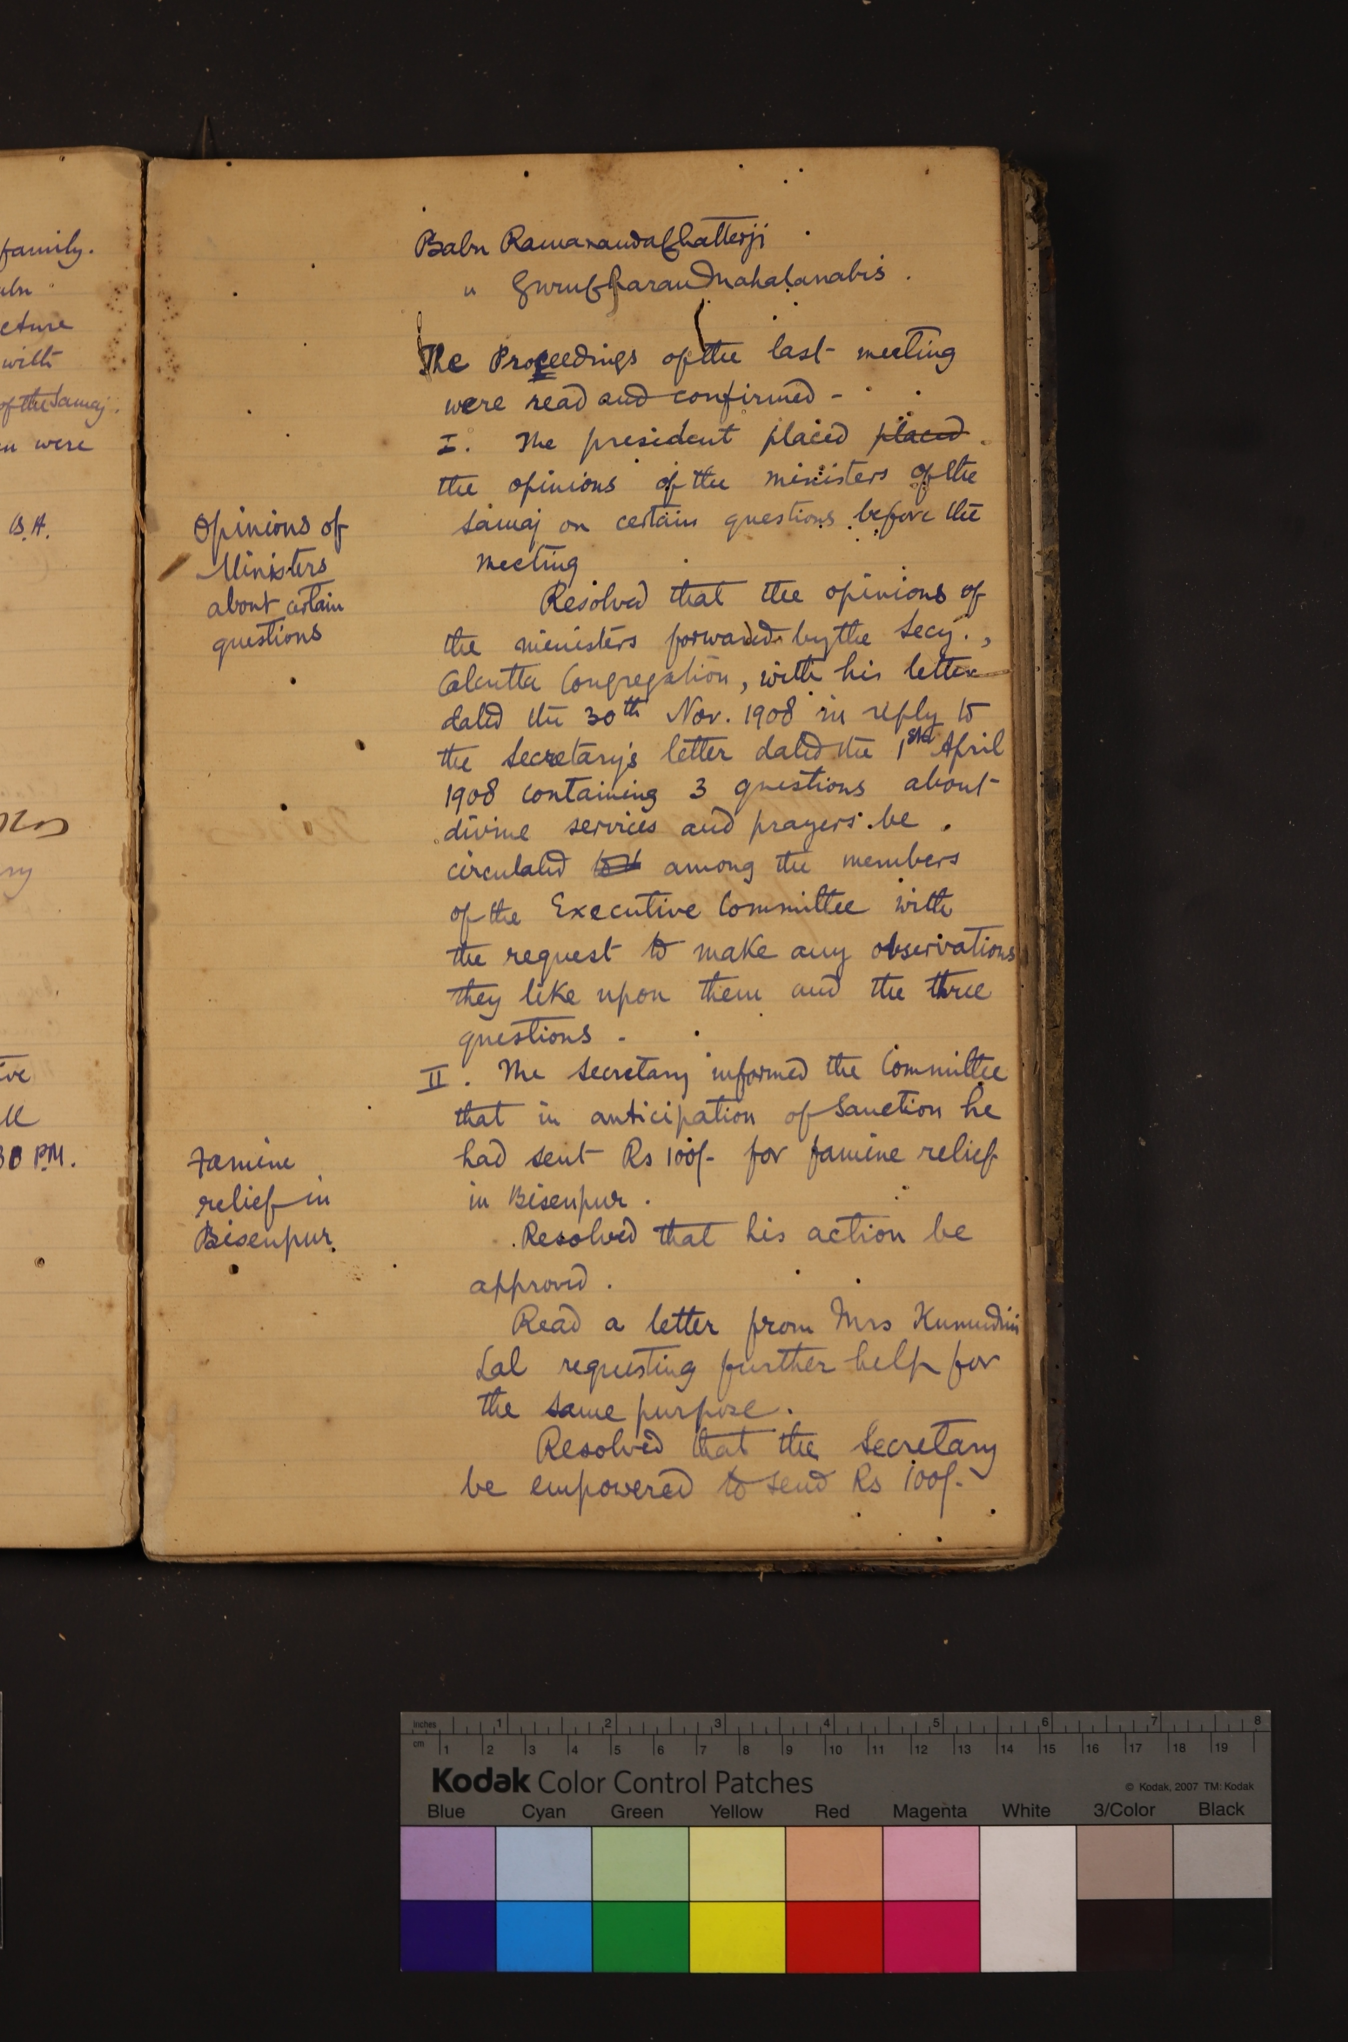 family.
cture
with
of the Samaj.
were
B.A.
30 P.M.
Babu Ramananda Chatterji
" Guru Charan Mahalanabis.
The Proceedings of the last meeting
were read and confirmed -
I. The president placed placed
the opinions of the ministers of the
Opinions of
Ministers
about certain
questions
Samaj on certain questions before the
meeting
Resolved that the opinions of
the ministers forwarded by the Secy.,
Calcutta Congregation, with his letter
dated the 30th Nov. 1908 in reply to
the secretary's letter dated the 1st April
1908 containing 3 questions about
divine services and prayers be
circulated among the members
of the Executive Committee with
the request to make any observations
they like upon them and the three
questions -
II. The secretary informed the Committee
that in anticipation of Sanction he
Famine
relief in
Bisenpur
had sent Rs 100/- for famine relief
in Bisenpur.
Resolved that his action be
approved.
Read a letter from Mrs Kumudini
Lal requesting further help for
the same purpose.
Resolved that the Secretary
be empowered to send Rs 100/-
inches 1 2 3 4 5 6 7 8
cm 1 2 3 4 5 6 7 8 9 10 11 12 13 14 15 16 17 18 19
Kodak Color Control Patches
© Kodak, 2007 TM: Kodak
Blue Cyan Green Yellow Red Magenta White 3/Color Black